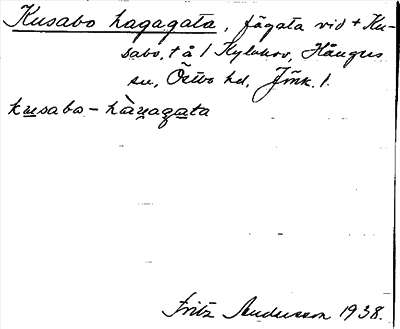 Kusabo hagagata, fägata vid + Ku-
sabo, t å 1 Kylahov, Hångers
sn, Östbo hd, Jönk. l.
kusabo - hàgagata
Fritz Andersson 1938.